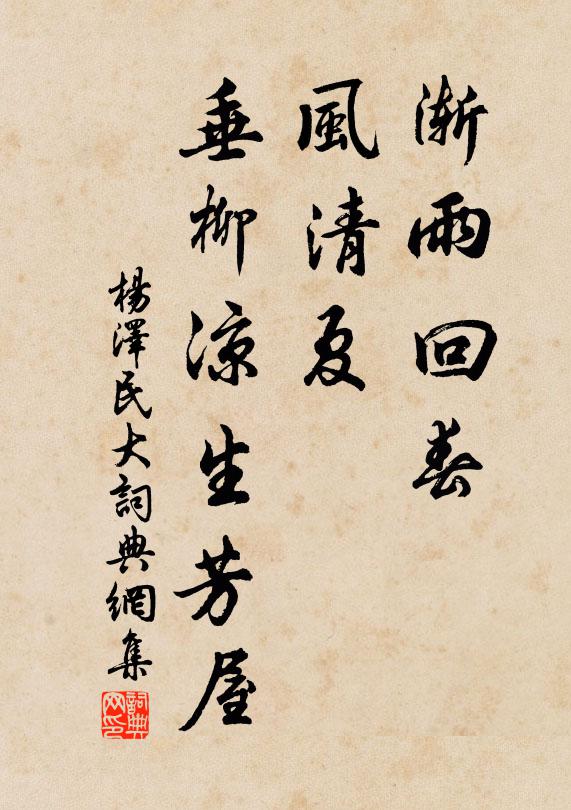 漸雨回春
風清夏
垂柳涼生芳屋
楊澤民大詞典網集
詞典
网印